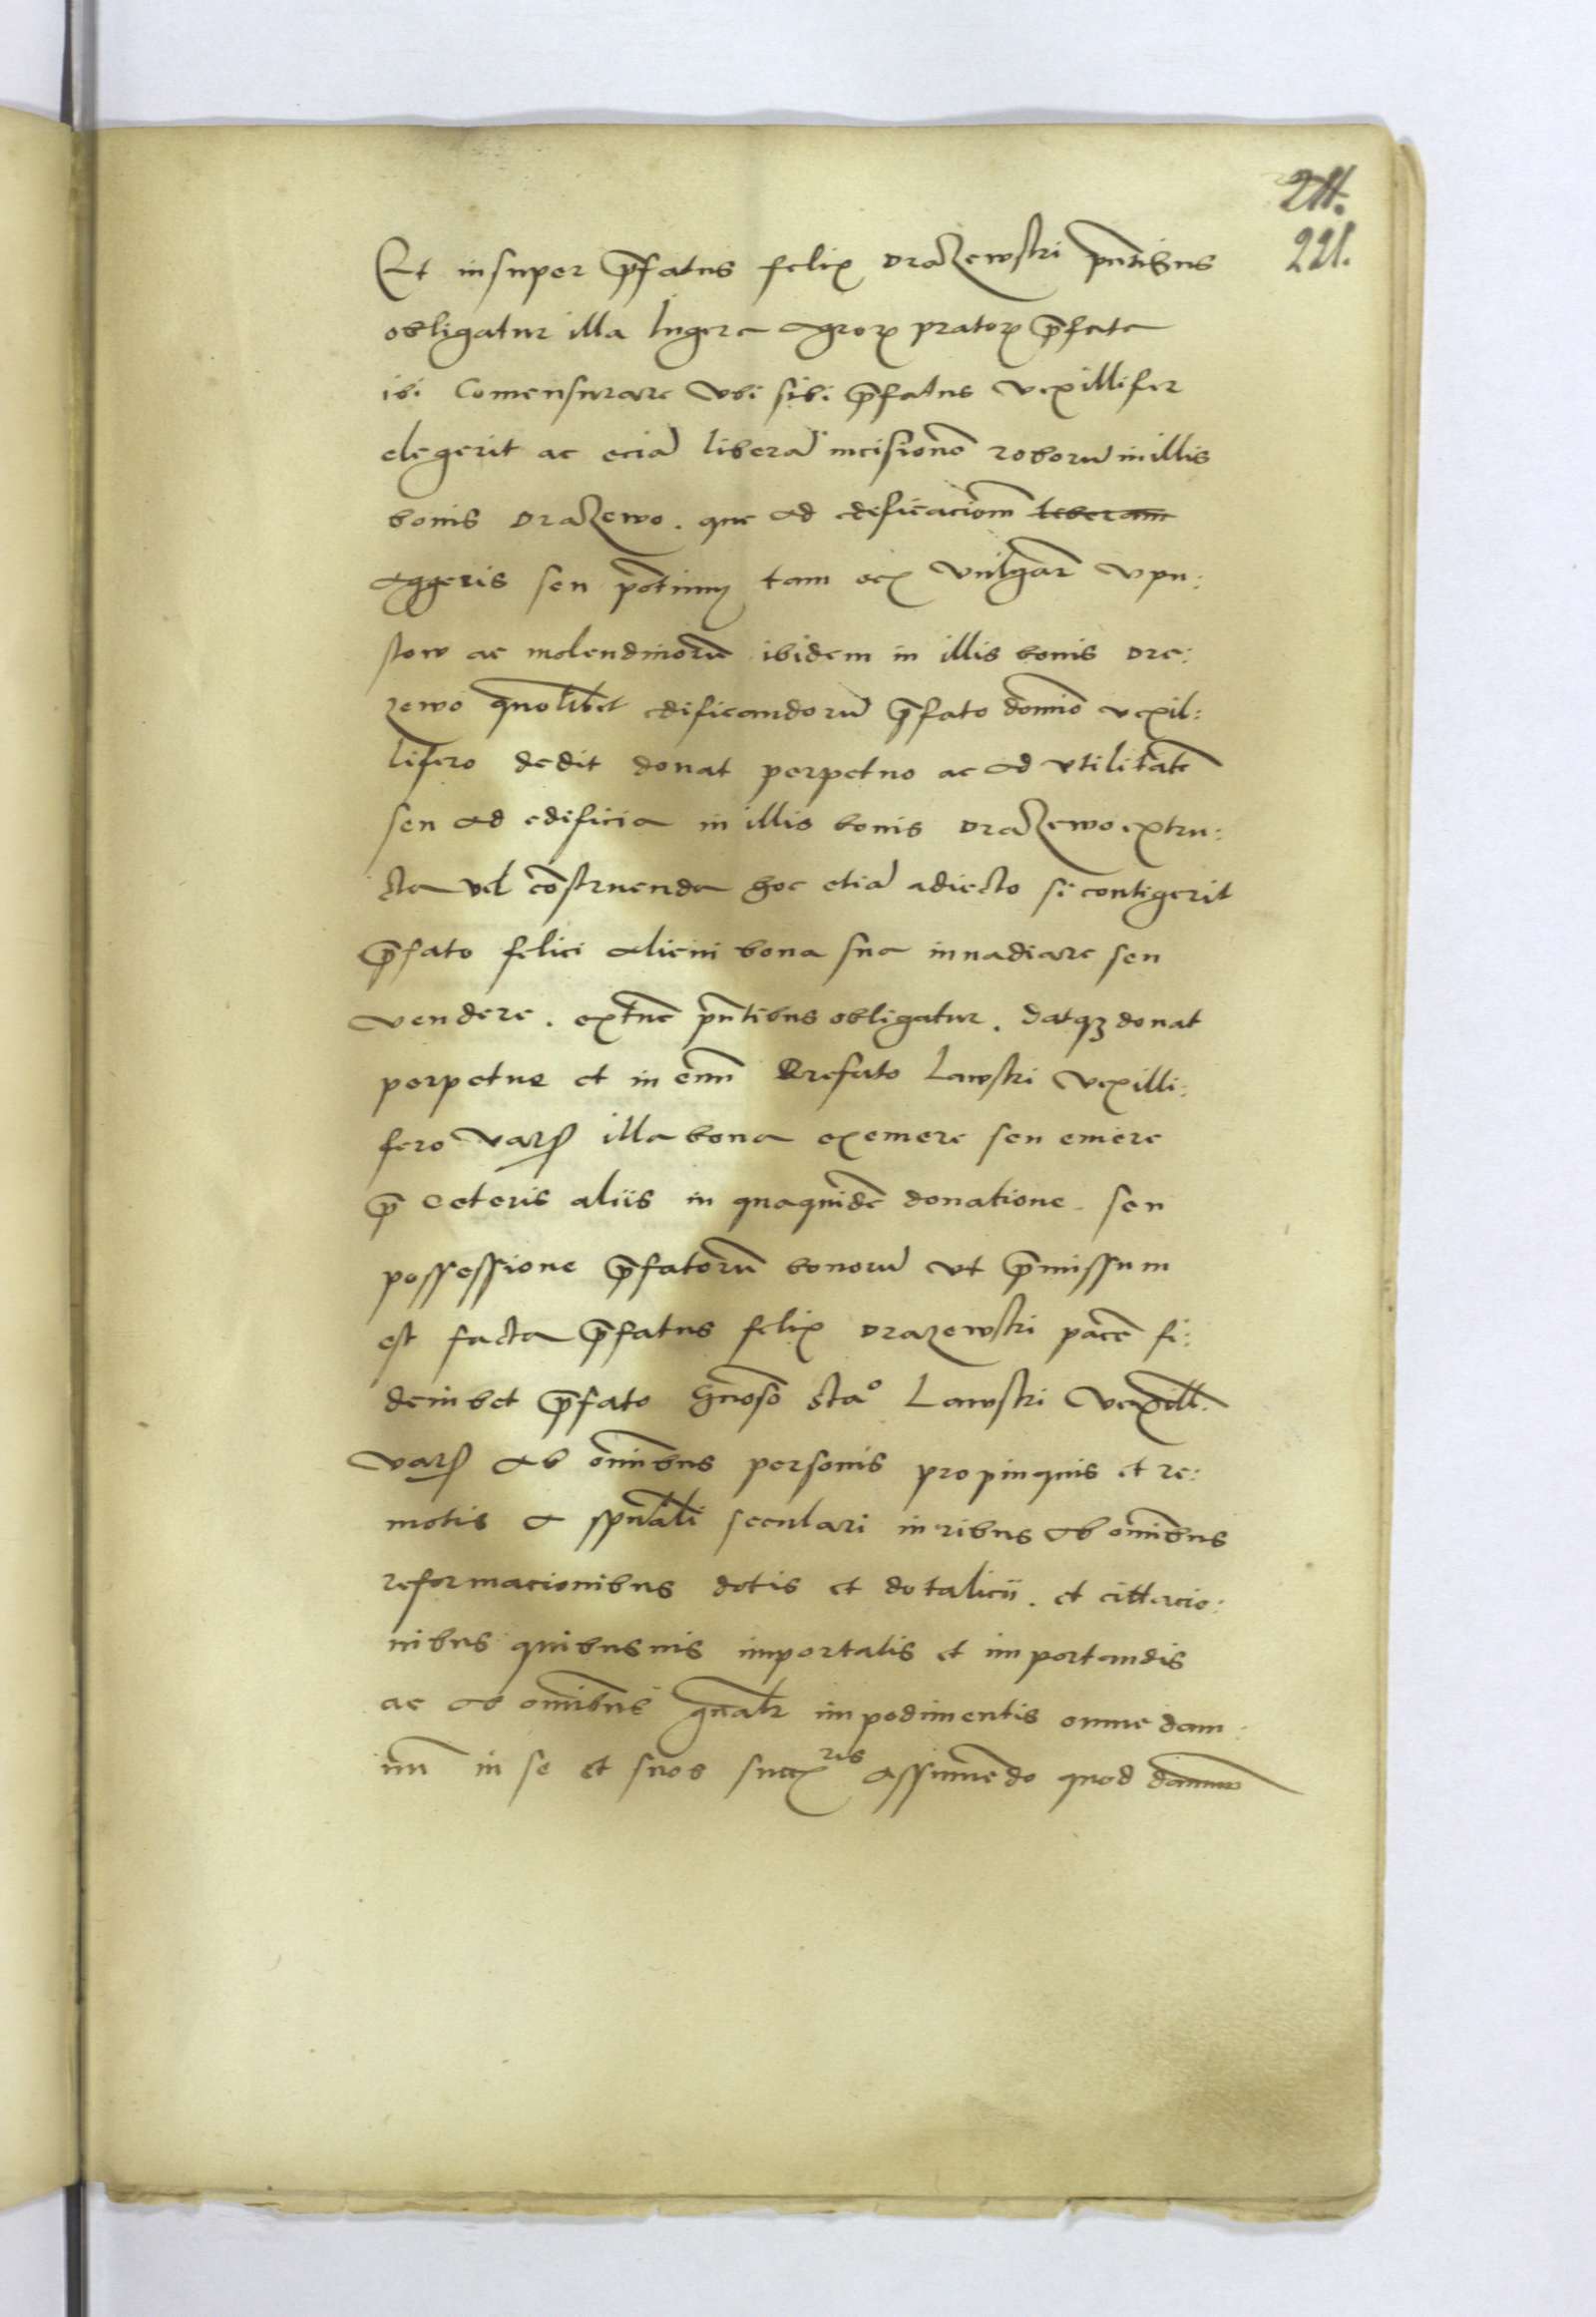 211.
221.
Et insuper p̄fatus felix Drazewski pn̄tibus
obligatur illa Iugera agrorꝫ pratorꝫ p̄fata
ibi Comensurare Vbi sibi p̄fatus Vexillifer
elegerit ac eciā liberā incisionē roborū in illis
bonis Drazewo. que ad edificaciōm liberam
Aggeris seu
stow ac molendinorū ibidem in illis bonis Dra:
zewo quolibet edificandorū p̄fato domīo vexil:
lifero dedit donat perpetuo ac ad vtilitatē
seu ad edificia in illis bonis Drazewo extru:
cta vel cōstruenda hoc etiā adiecto si contigerit
p̄fato felici alicui bona sua inuadiare seu
vendere. extūc pn̄tibus obligatur. datqꝫ donat
perpetue et in eūm Prefato Lawski Vexilli:
fero Vars illa bona exemere seu emere
p̄ Ceteris aliis in quaquidē donatione seu
possessione p̄fatorū bonorū vt p̄missum
est facta p̄fatus felix Drazewski pacē fi:
deiubet p̄fato Gn̄oso Sta° Lawski Vexill.
Vars ab om̄ibus personis propinquis et re:
motis a spūali seculari iuribus ab om̄ibus
reformacionibus dotis et dotalicii. et cittacio:
nibus quibusuis importatis et importandis
ac ab om̄ibus gn̄alr impedimentis omne dam:
nū in se et suos succꝫres assumēdo quod damnum